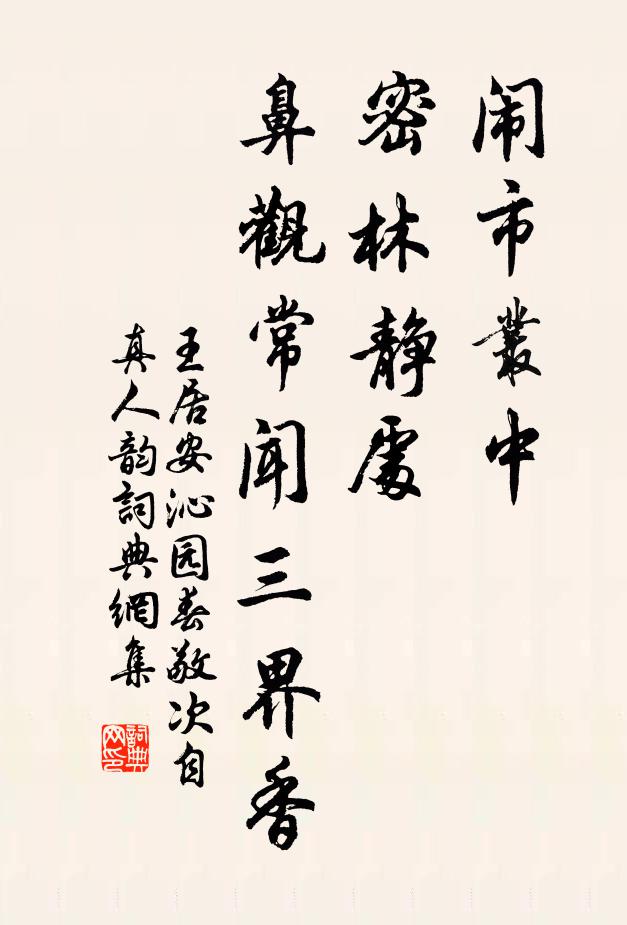 闹市叢中
密林静處
鼻觀常闻三界香
王居安沁园春敬次自
真人韵詞典網集
詞典网印